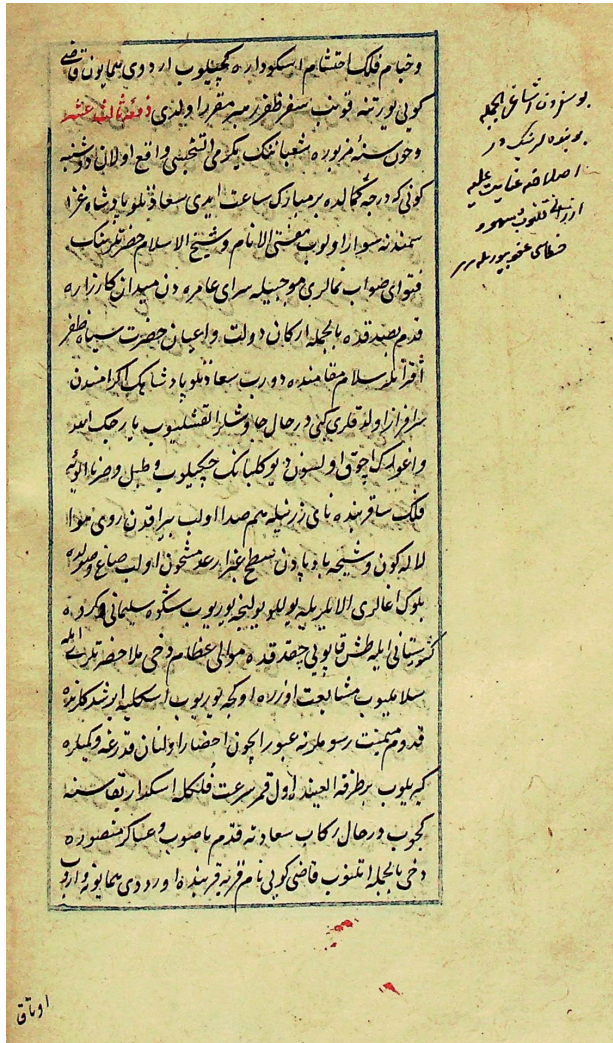 وخيام فلك احتشام اسكوداره كچيلوب اردوى همايون قاضى
كويى يورتنه قونب سفر ظفر رهبر مقرر اولدى دفعهٔ ثالث عشر
وچون سنهٔ مزبوره شعبانك يكرمى التنجيسى واقع اولان دوشنبه
كونى كه درجهٔ كمالده بر مبارك ساعت ايدى سعادتلو پادشاه غزا
سمندنه سوار اولوب مفتئ الانام وشيخ الاسلام حضرتلرينك
فتواى صواب نمالرى موجبيله سراى عامره دن ميدان كارزاره
قدم بصدقده بالجمله اركان دولت واعيان حضرت سپاه ظفر
سلام مقامنده دورب سعادتلو پادشاهك اكرامندن
سرافراز اولدقلرى كبى درحال چاوشلر القشليوب
اوغورك اچوق اولسون ديو كلبانك چكيلوب وطبل
فلك نده ناى زرينله هم صدا اولب بيراقدن روى هوا
لاله كون وشيحهٔ بادپادن سطح غبرا رعد مشحون اولب صاغ وصولده
بلوك اغالرى الايلريله يوللو يولنجه يوريوب شكوه سليمانى
ايله طش قاپويى چقدقده موالئ عظام دخى حضرتلرى ايله
سلامليوب مشايعت اوزره اوكجه يوريوب اسكله ايرشدكلرنده
قدوم ميمنت رسوملرنه عبور ايچون احضار اولنان قدرغه وكميلره
كيريلوب برطرفة العينده اول قمر سرعت فلكله اسكدار يقاسنه
كچوب درحال ركاب سعادته قدم باصوب وعساكر منصوره
دخى بالجمله اتلنوب قاضى كويى نام قريه قربنده اوردوى همايونه واروب
اوتاق
بو
بو بنده لرينك در
اصلاحه عنايت
قلنوب سهو و
خطاسى عفو بيوريله